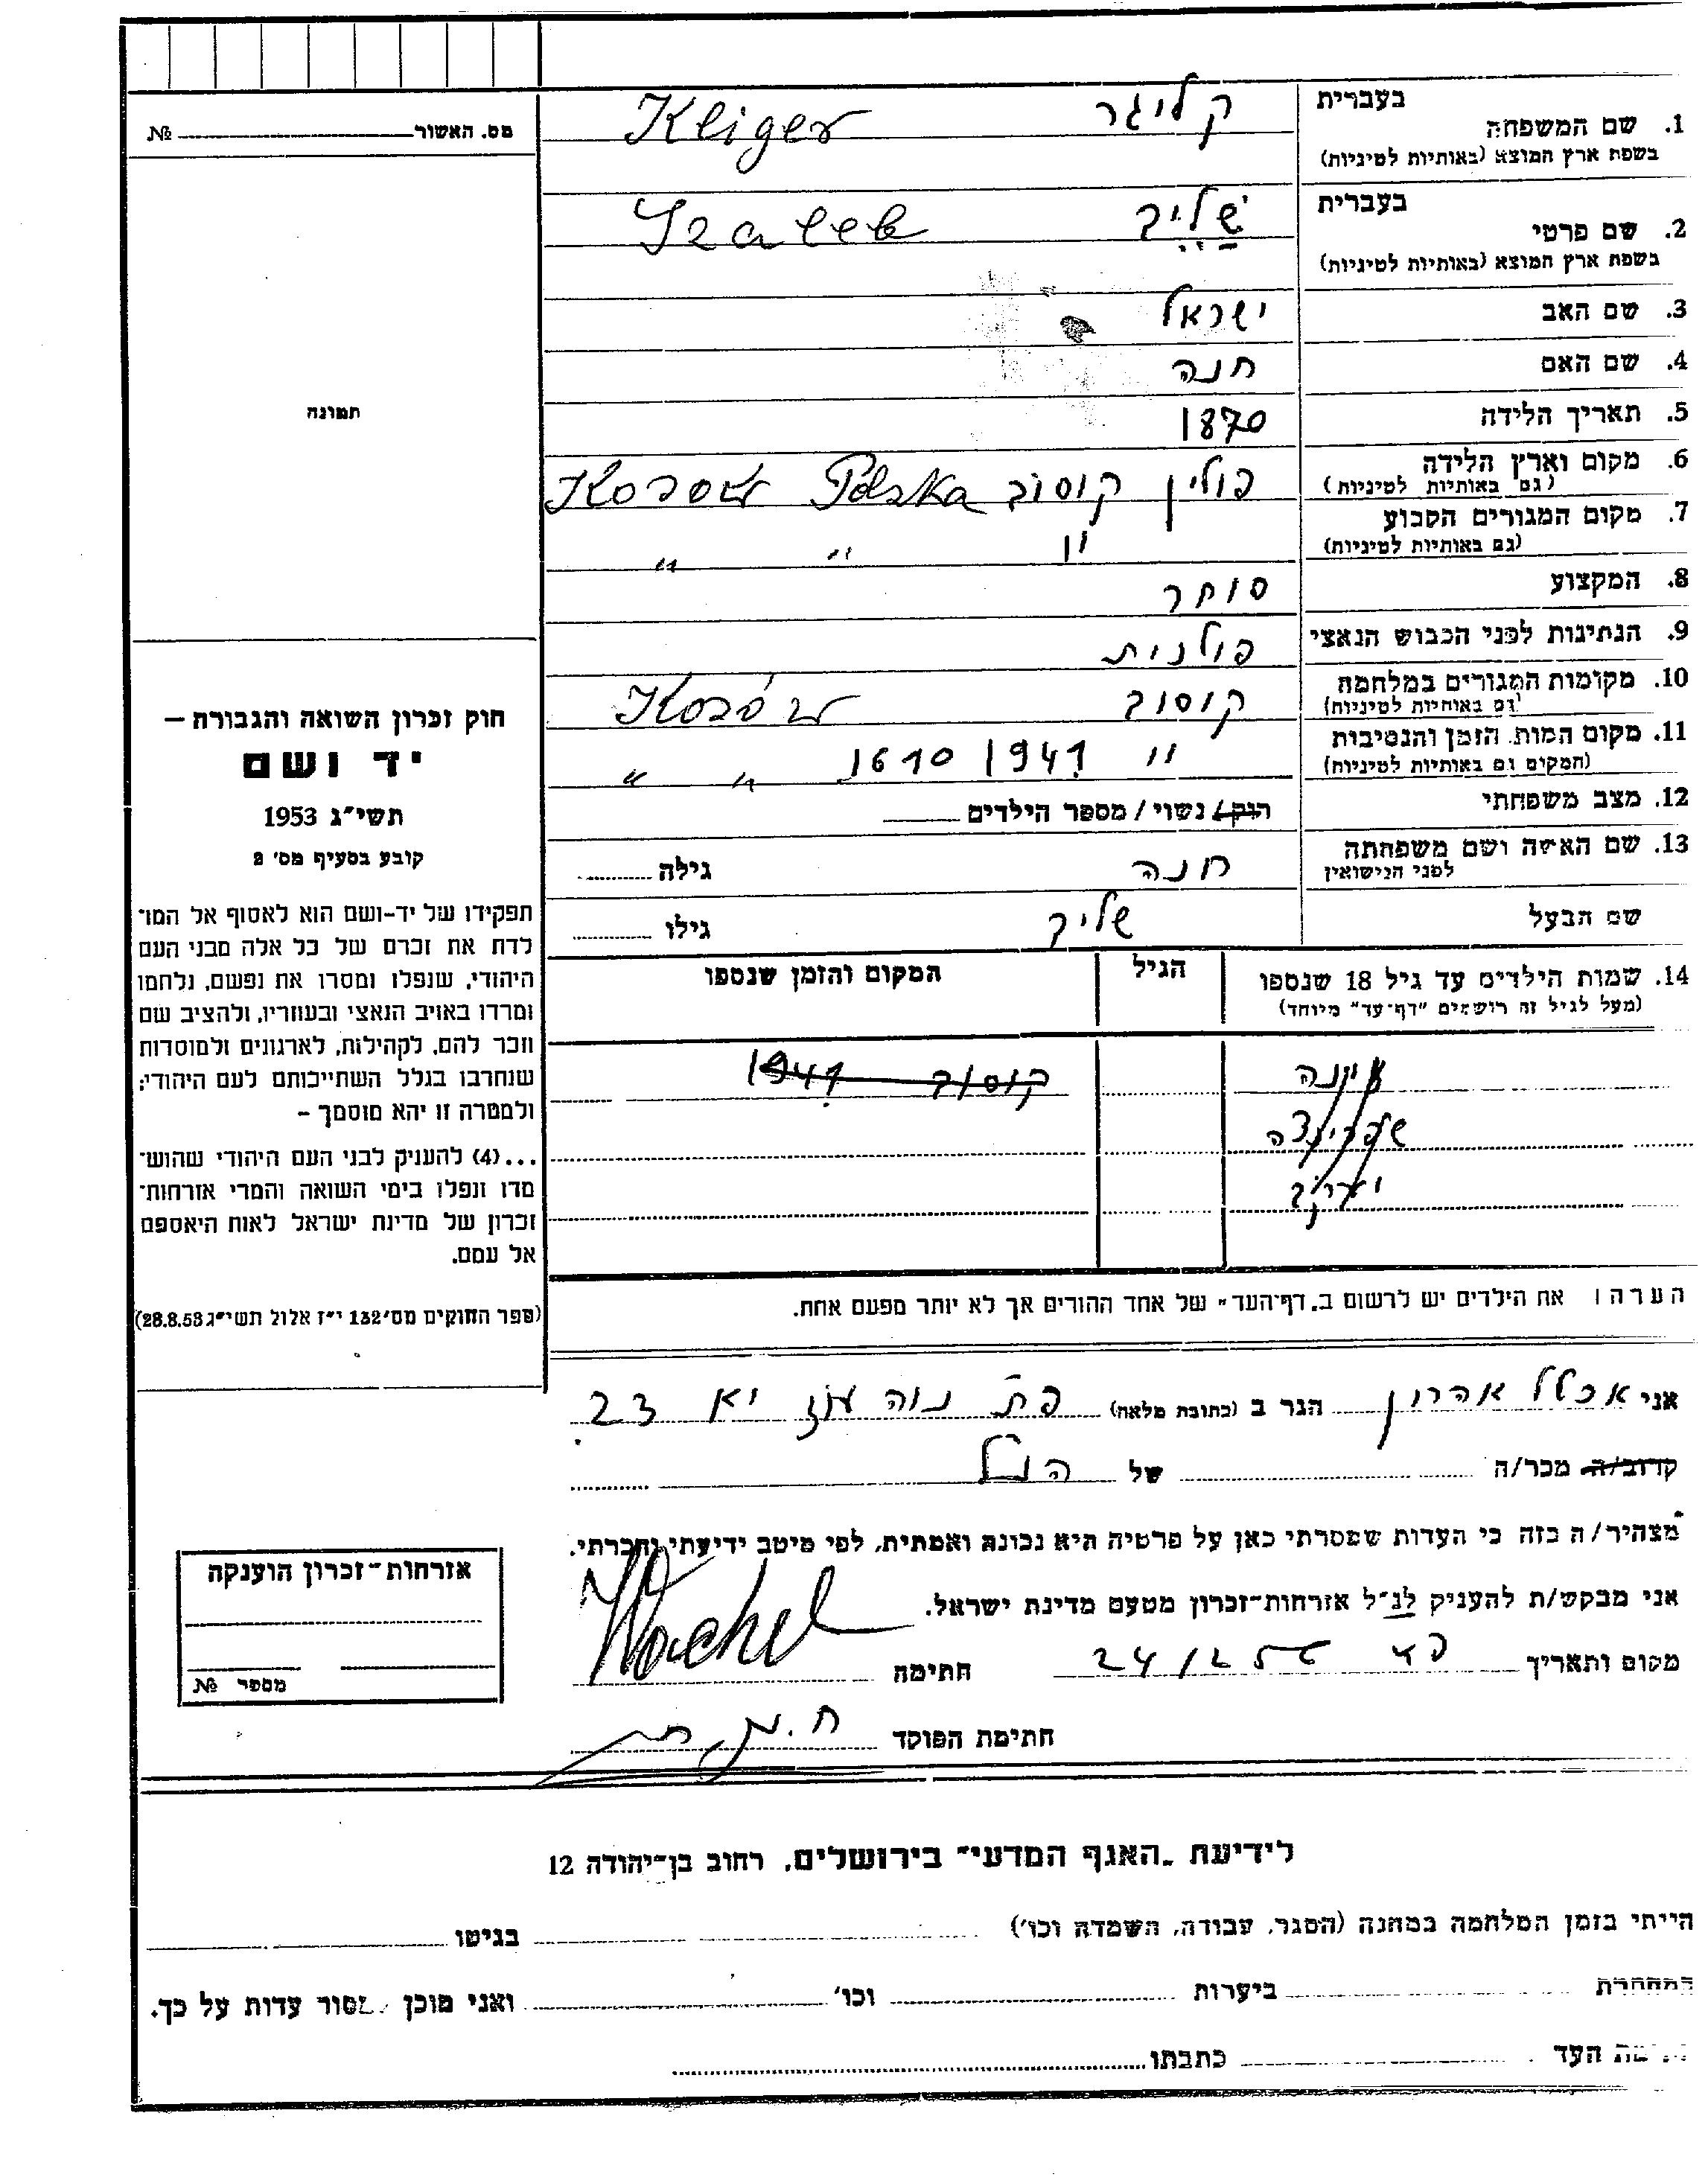 בעברית
1. שם המשפחה קליגר Kliger
בשפת ארץ המוצא (באותיות לטיניות)
בעברית
2. שם פרטי
בשפת ארץ המוצא (באותיות לטיניות)
3. שם האב ישראל
4. שם האם חנה
5. תאריך הלידה 1870
6. מקום וארץ הלידה פולין קוסוב Polska Kosow
(גם באותיות לטיניות)
7. מקום המגורים הקבוע " " "
(גם באותיות לטיניות)
8. המקצוע סוחר
9. הנתינות לפני הכבוש הנאצי פולנית
10. מקומות המגורים במלחמה קוסוב Kosów
(גם באותיות לטיניות)
11. מקום המות, הזמן והנסיבות " 1941 1610 " "
(המקום גם באותיות לטיניות)
12. מצב משפחתי רווק/ נשוי / מספר הילדים
13. שם האישה ושם משפחתה חנה גילה
לפני הנישואין
שם הבעל גילו
14. שמות הילדים עד גיל 18 שנספו הגיל המקום והזמן שנספו
(מעל לגיל זה רושמים "דף-עד" מיוחד)
קוסוב 1941
הערה: את הילדים יש לרשום ב"דף-העד" של אחד ההורים אך לא יותר מפעם אחת.
אני אהרון הגר ב (כתובת מלאה) נוה עוז יא 23
קרוב/ה מכר/ה של הנ"ל
מצהיר/ה בזה כי העדות שמסרתי כאן על פרטיה היא נכונה ואמתית, לפי מיטב ידיעתי והכרתי.
אני מבקש/ת להעניק לנ"ל אזרחות-זכרון מטעם מדינת ישראל.
מקום ותאריך חתימה
חתימת הפוקד
מס. האשור №
תמונה
חוק זכרון השואה והגבורה –
יד ושם
תשי"ג 1953
קובע בסעיף מס' 2
תפקידו של יד-ושם הוא לאסוף אל המו־
לדת את זכרם של כל אלה מבני העם
היהודי, שנפלו ומסרו את נפשם, נלחמו
ומרדו באויב הנאצי ובעוזריו, ולהציב שם
וזכר להם, לקהילות, לארגונים ולמוסדות
שנחרבו בגלל השתייכותם לעם היהודי;
ולמטרה זו יהא מוסמך –
...(4) להעניק לבני העם היהודי שהוש־
מדו ונפלו בימי השואה והמרי אזרחות־
זכרון של מדינת ישראל לאות היאספם
אל עמם.
(ספר החוקים מס' 132 י"ז אלול תשי"ג 28.8.53)
אזרחות-זכרון הוענקה
מספר №
לידיעת "האגף המדעי" בירושלים, רחוב בן-יהודה 12
הייתי בזמן המלחמה במחנה (הסגר, עבודה, השמדה וכו') בגיטו
במחתרת ביערות וכו' ואני מוכן למסור עדות על כך.
העד כתבתו